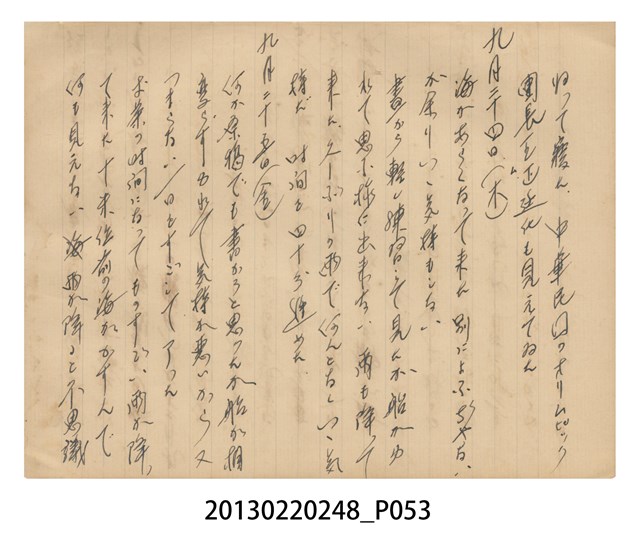 帰って寝た、中華民国のオリムピック
団長も
九月二十四日(木)
海があらくなって来た 別によふぢゃない
が 余りいゝ気持もしない
書から軽い練習して見たが船がゆ
れて思ふ様に出来ない 雨も降って
来た、久しぶりの雨で何んとなしいゝ気
持だ 時間を四十分進めた
九月二十五日(金)
何か原稿でも書かうと思つたが船が相
変らずゆれて気持が悪いから又
つまらない一日をすごしてアった
お茶の時間になってものすごい雨が降
て来た 十米位前の海がかすんで
何も見えない 海 雨が降ると不思議
20130220248_P053